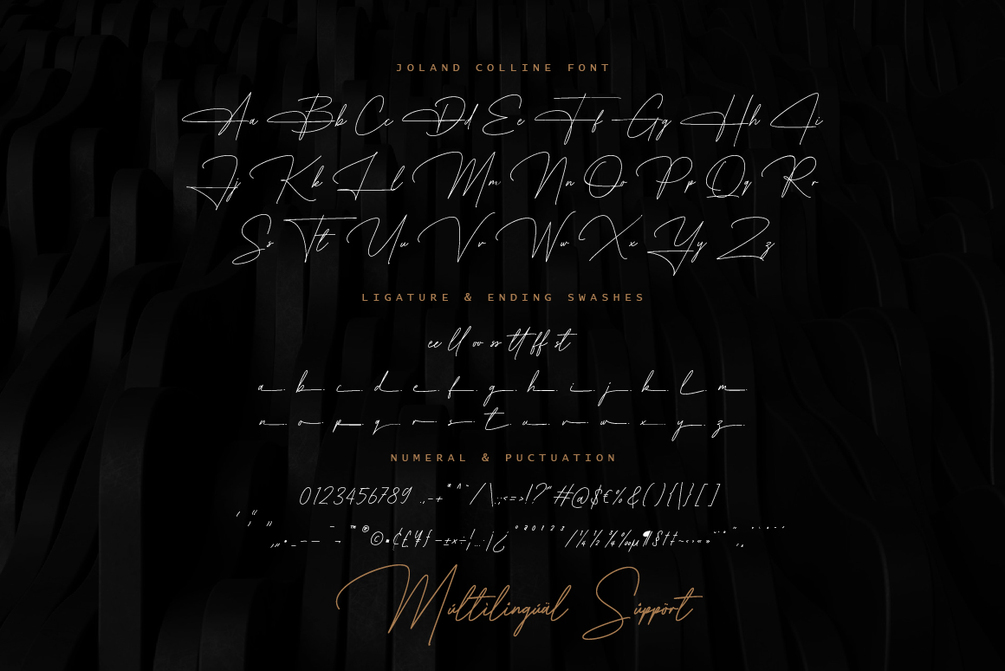 JOLAND COLLINE FONT
Aa Bb Cc Dd Ee Ff Gg Hh Ii
Jj Kk Ll Mm Nn Oo Pp Qq Rr
Ss Tt Uu Vv Ww Xx Yy Zz
LIGATURE & ENDING SWASHES
ee ll oo ss tt ff st
a b c d e f g h i j k l m
n o p q r s t u v w x y z
NUMERAL & PUCTUATION
0123456789 .,-+"^~/\:;<=>!?"#@$€%&(){|}[]
Múltilingüäl Súppört